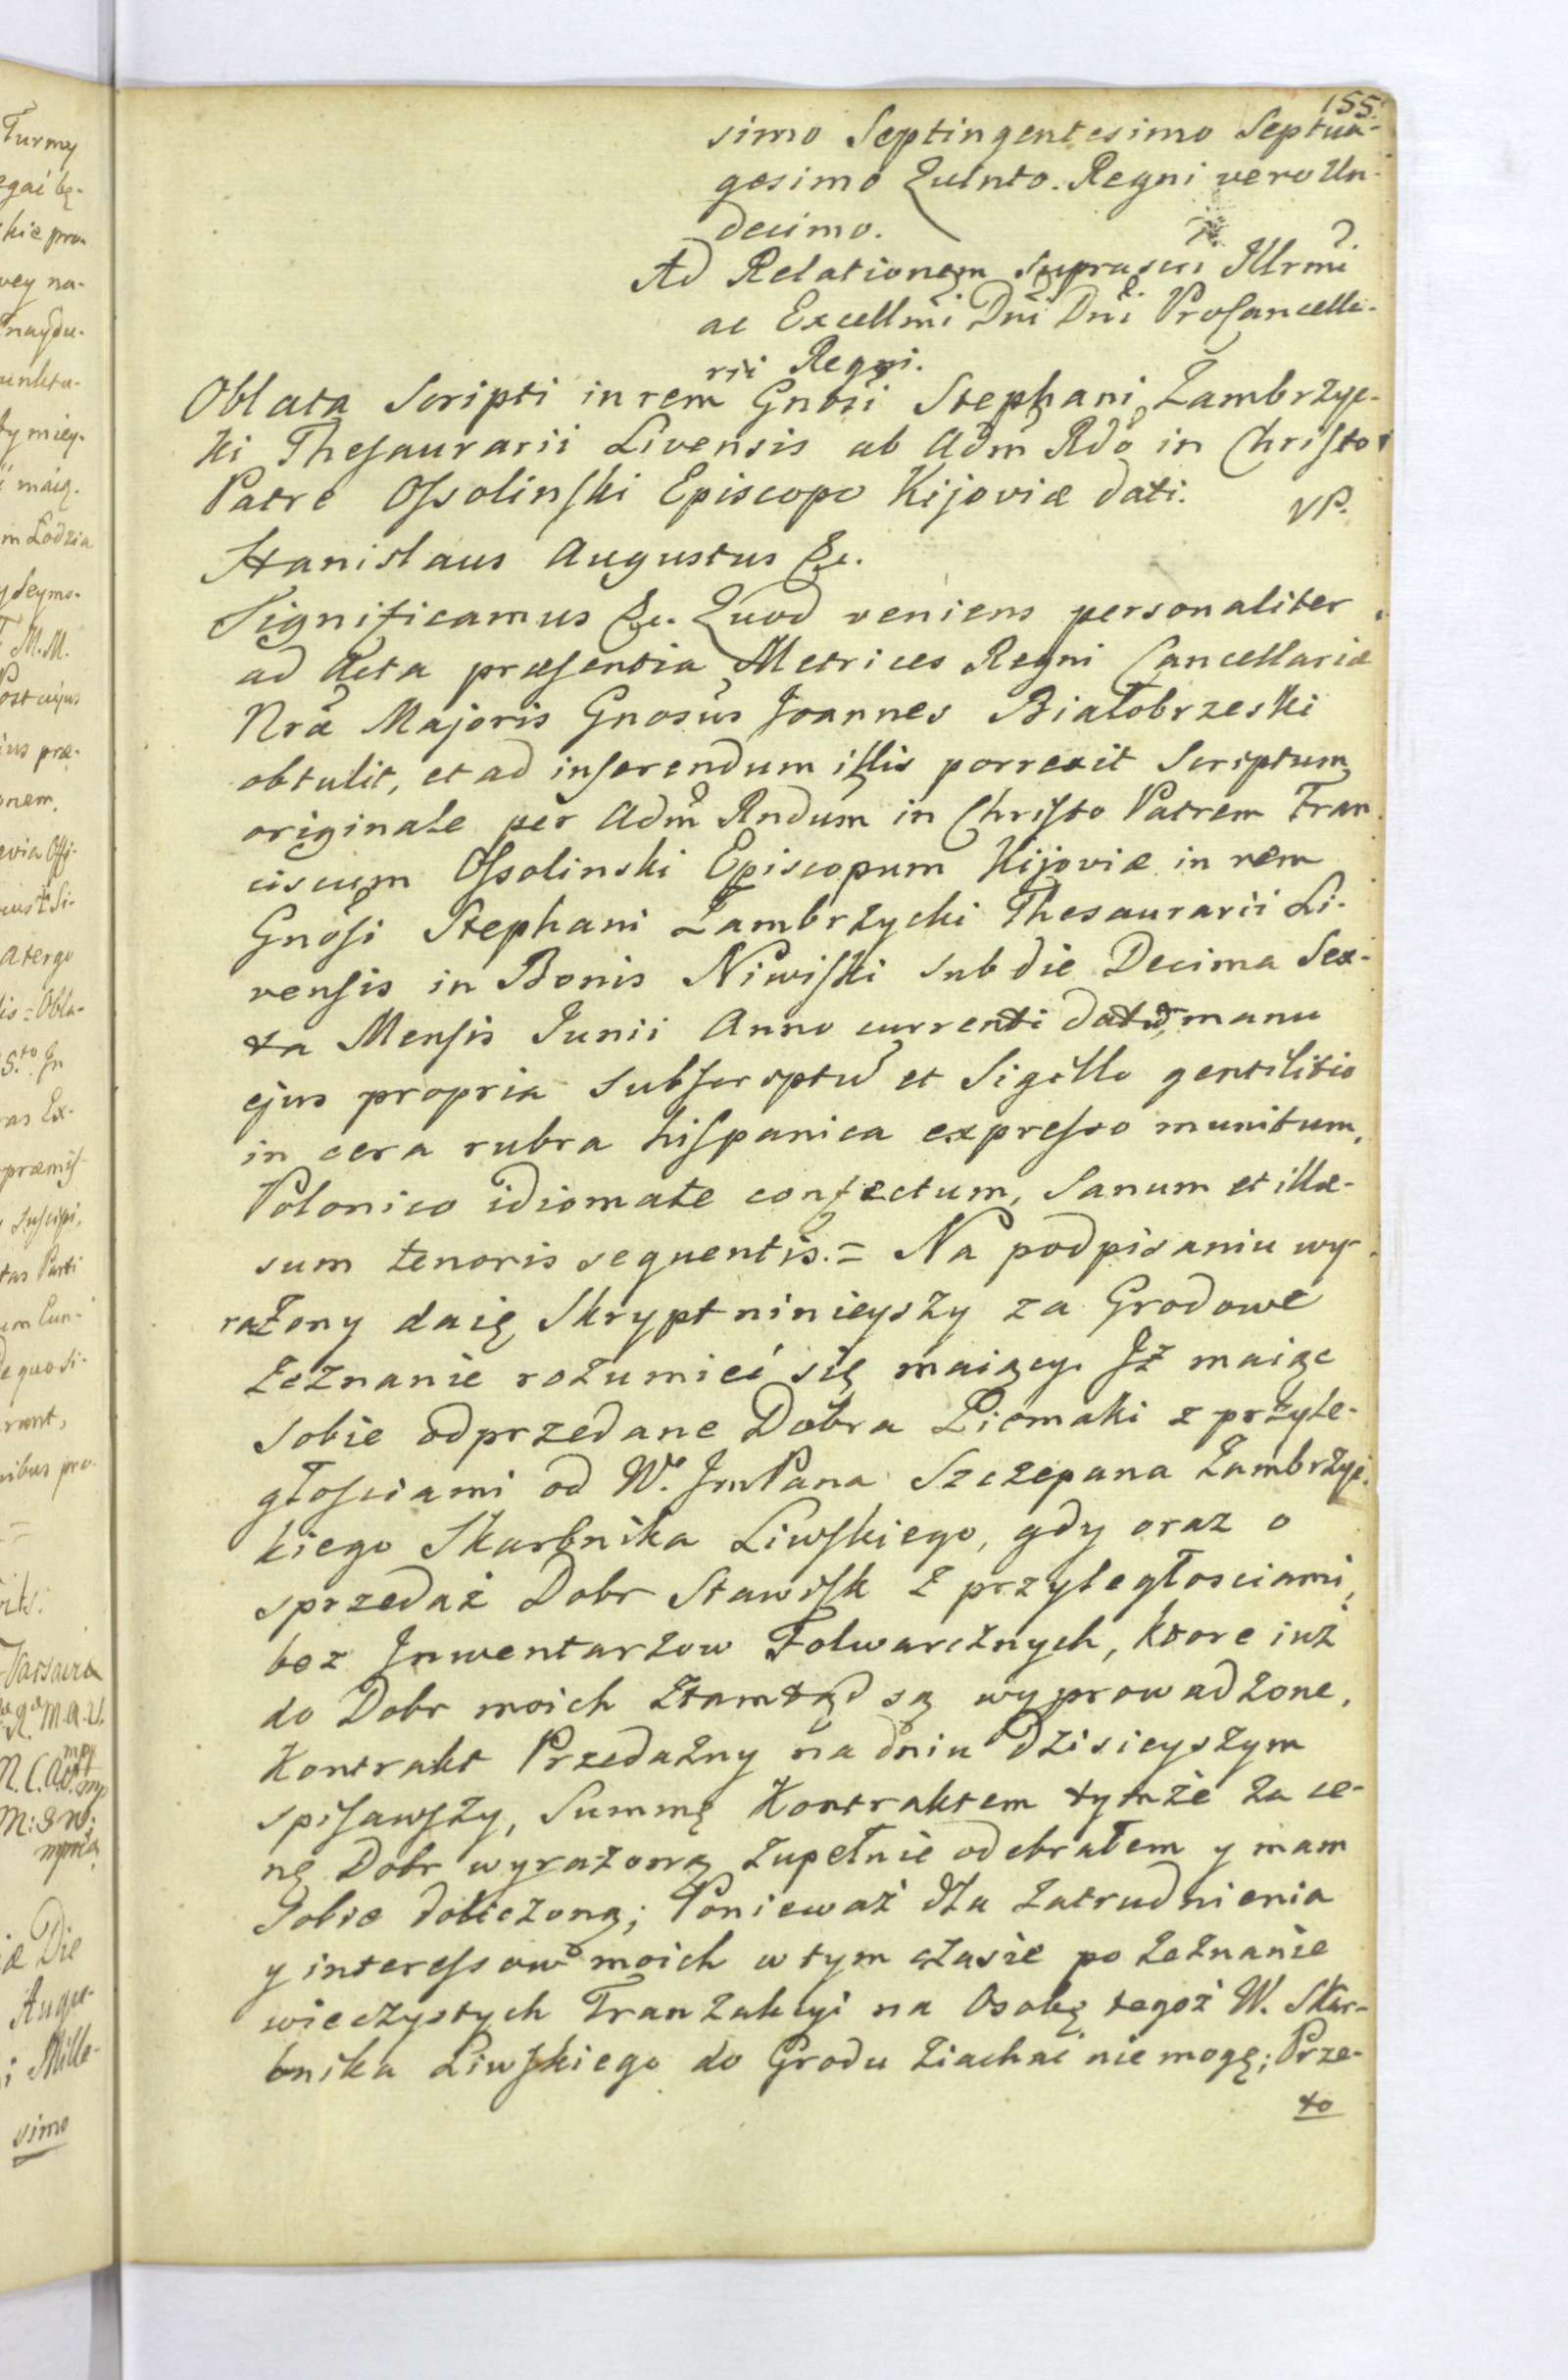 155.
simo Septingentesimo Septua-
gesimo Quinto. Regni vero Un-
decimo.
Ad Relationem suprascri Illrmi
ac Excellmi Dni Dni ProCancella-
rii Regni.
Oblata Scripti in rem Gnosi Stephani Zambrzyc-
ki Thesaurarii Livensis ab Adm Rdo in Christo
Patre Ossolinski Episcopo Kijoviæ dati. VP.
Stanislaus Augustus &c.
Significamus &c. Quod veniens personaliter
ad Acta præsentia Metrices Regni Cancellariæ
Nræ Majoris Gnosus Joannes Białobrzeski
obtulit, et ad inserendum illis porrexit Scriptum
originale per Adm Rndum in Christo Patrem Fran
ciscum Ossolinski Episcopum Kijoviæ in rem
Gnosi Stephani Zambrzycki Thesaurarii Li-
vensis in Bonis Niwiski sub die Decima Sex-
ta Mensis Junii Anno currenti datu, manu
ejus propria subscriptu et Sigillo gentilitio
in cera rubra hispanica expresso munitum,
Polonico idiomate confectum, Sanum et illæ-
sum tenoris sequentis. = Na podpisaniu wy-
rażony daię Skrypt ninieyszy za Grodowe
Zeznanie rozumieć się maiący. Iż maiąc
sobie odprzedane Dobra Ziomaki z przyle-
głosciami od W. ImPana Szczepana Zambrzyc-
kiego Skarbnika Liwskiego, gdy oraz o
sprzedaż Dobr Stawisk z przyległosciami,
bez Inwentarzow Folwarcznych, ktore iuż
do Dobr moich ztamtąd są wyprowadzone,
Kontrakt Przedażny na dniu dzisieyszym
spisawszy, Summę Kontraktem tymże za ce-
nę Dobr wyrażoną zupełnie odebrałem y mam
Sobie doliczoną; Ponieważ dla zatrudnienia
y interessow moich w tym czasie po zeznanie
wieczystych Tranzakcyi na Osobę tegoż W. Skar-
bnika Liwskiego do Grodu ziachać nie mogę; Prze-
to